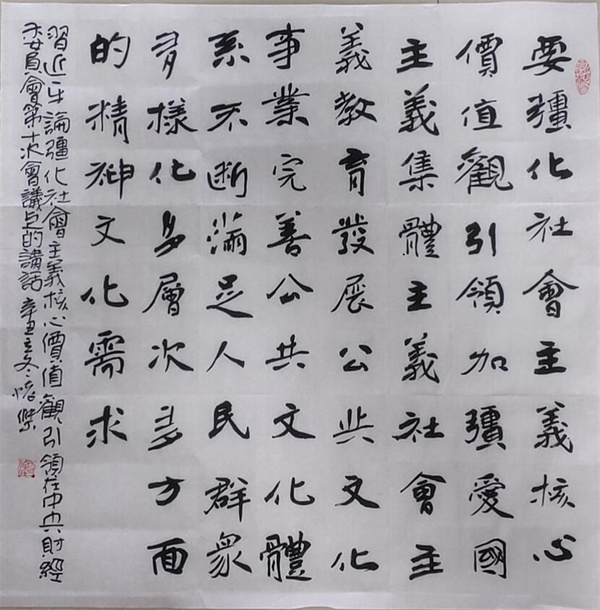 要彊化社會主義核心
價值觀引領加彊愛國
主義集體主義社會主
義教育發展公共文化
事業完善公共文化體
系不断滿足人民群衆
多樣化多層次多方面
的精神文化需求
習近平論彊化社會主義核心價值觀引領在中央財經
委員會第十次會議上的講話 辛丑立冬 懷傑